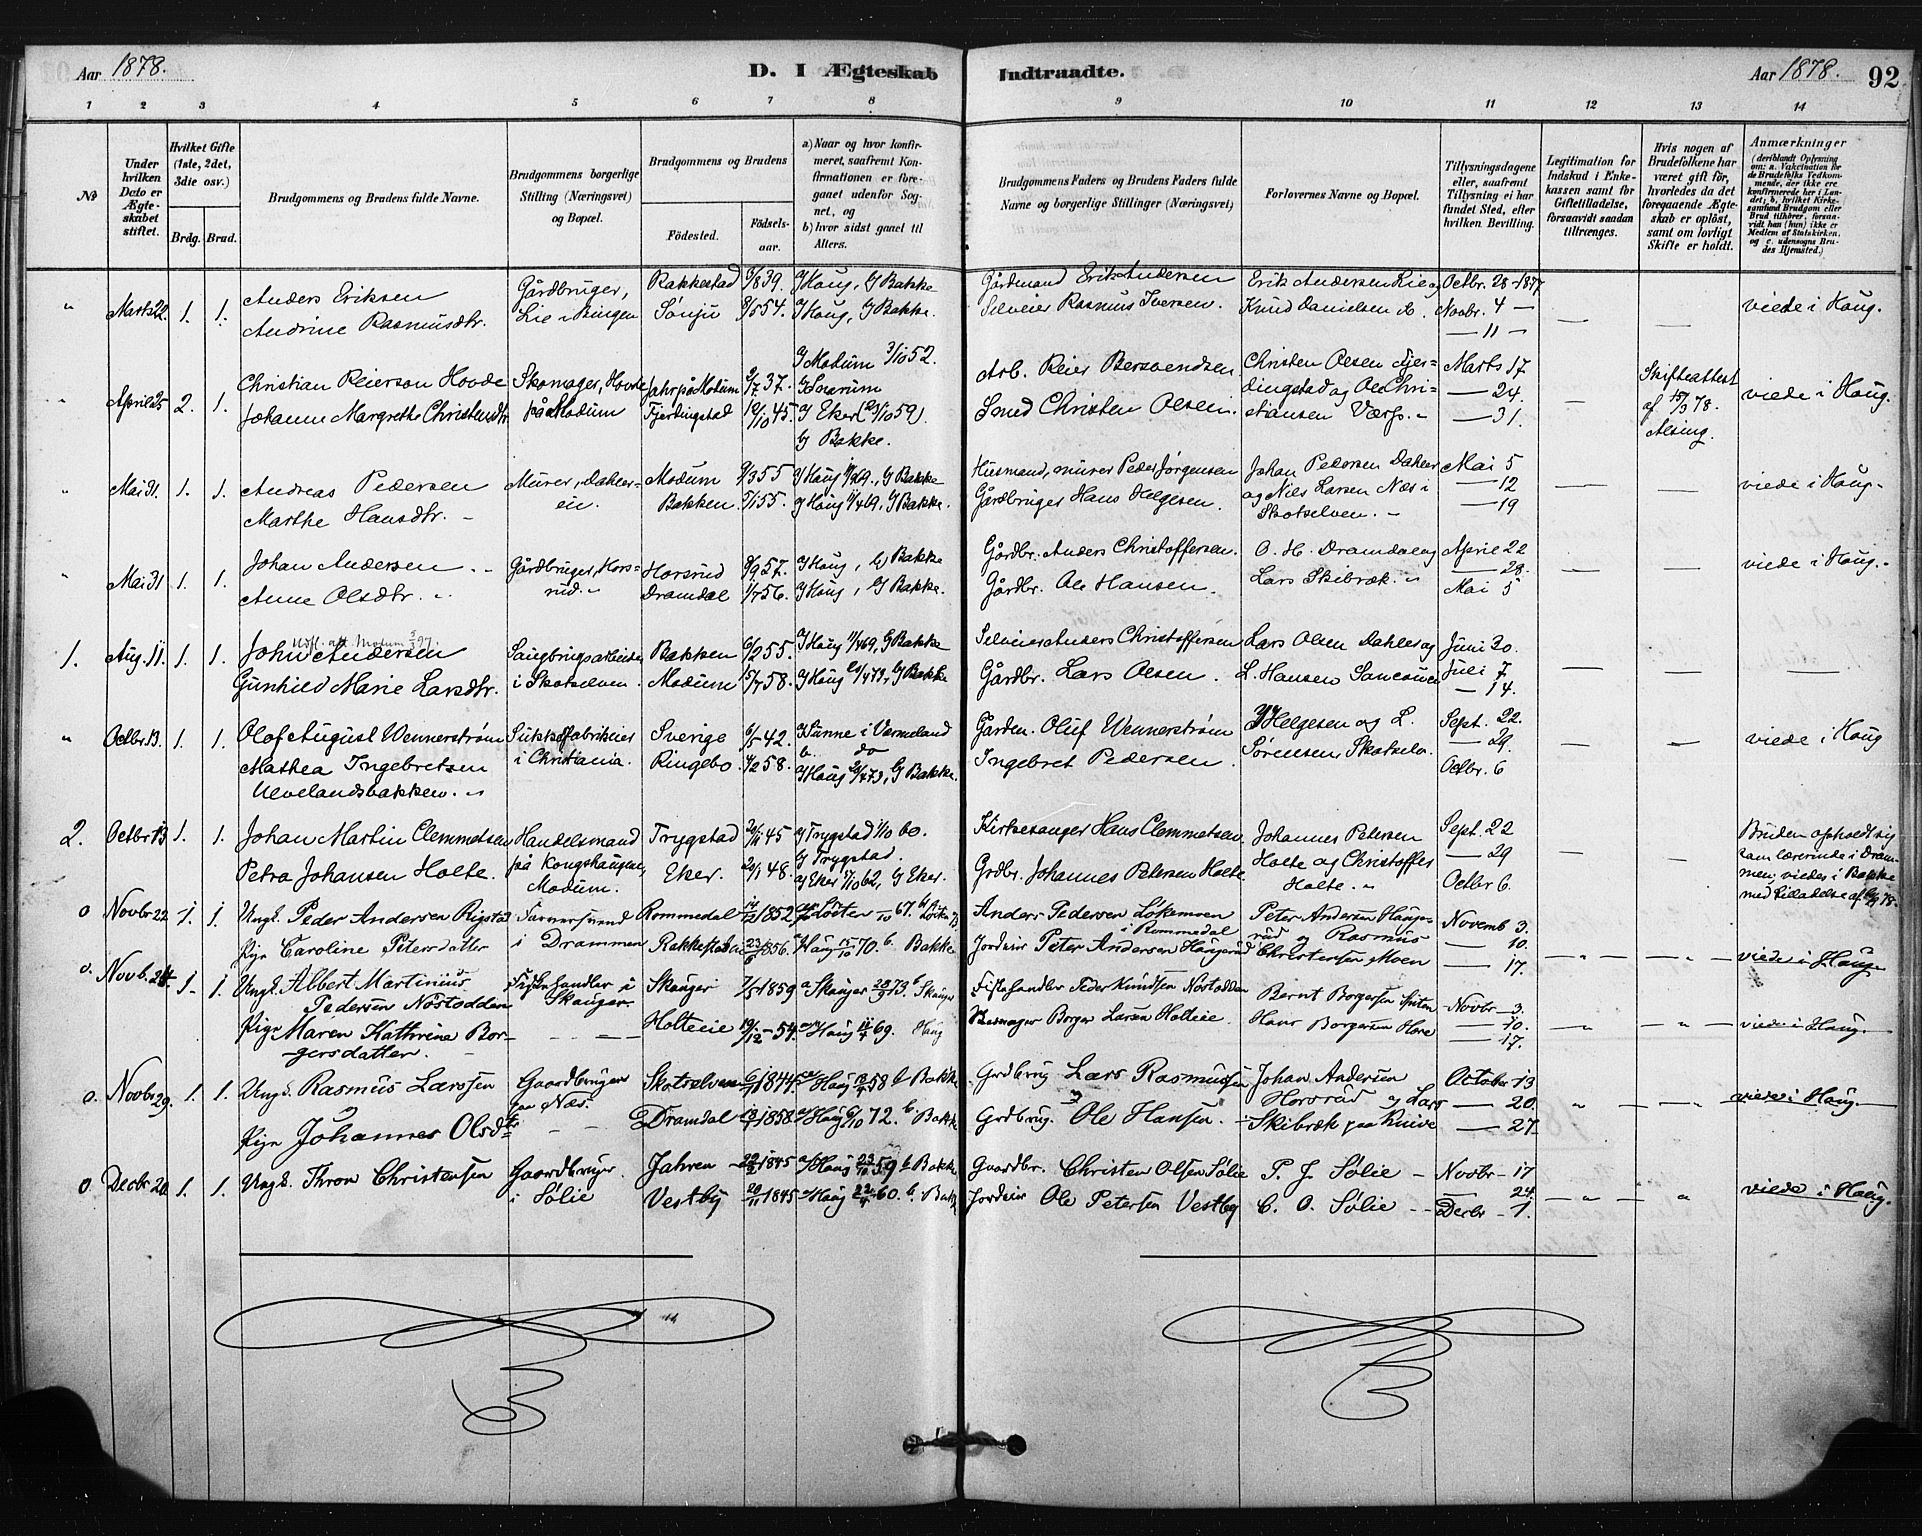 Aar 1878.
D. I Ægteskab
Indtraadte.
Aar 1878.
92
1 2 3 4 5 6 7 8 9 10 11 12 13 14
No
Under hvilken Dato er Ægteskabet stiftet.
Hvilket Gifte (1ste, 2det, 3die osv.)
Brdg. Brud.
Brudgommens og Brudens fulde Navne.
Brudgommens borgerlige Stilling (Næringsvei) og Bopæl.
Brudgommens og Brudens
Fødested. Fødselsaar.
a) Naar og hvor konfirmeret, saafremt Konfirmationen er foregaaet udenfor Sognet, og
b) hvor sidst gaaet til Alters.
Brudgommens Faders og Brudens Faders fulde Navne og borgerlige Stillinger (Næringsvei)
Forlovernes Navne og Bopæl.
Tillysningsdagene eller, saafremt Tillysning ei har fundet Sted, efter hvilken Bevilling.
Legitimation for Indskud i Enkekassen samt for Giftetilladelse, forsaavidt saadan tiltrænges.
Hvis nogen af Brudefolkene har været gift før, hvorledes da det foregaaende Ægteskab er opløst, samt om lovligt Skifte er holdt.
Anmærkninger
(deriblandt Oplysning om: a. Vakcination for de Brudefolks Vedkommende, der ikke ere konfirmerede her i Landet; b, hvilket Kirkesamfund Brudgom eller Brud tilhører, forsaavidt han (hun) ikke er Medlem af Statskirken, og c. udensogns Brudes Hjemsted.)
" Marts 22. 1. 1. Anders Eriksen Gårdbruger, Rakkestad 3/8 39. Haug, Bakke Gårdmand Erik Andersen Erik Andersen Octbr. 28-1877
Andrine Rasmusdtr. Lie i Ringen 8/5 54. Haug, Bakke. Selveier Rasmus Iversen. Knud Danielsen Novbr. 4 — viede i Haug.
— 11 —
" April 25 2. 1. Christian Reierson Hovde Skomager, Hovde Jahr på Modum 2/7 37. Modum 3/10 52. Arb. Reier Bersvendsen Christen Olsen Fjerdingstad og Ole Christiansen Marts 17
Johanne Margrethe Christensdtr. på Modum Fjerdingstad 12/10 45. Snarum Eker (23/10 59) Bakke. Christen Olsen. — 24. — 31. Skifteattest af 15/3 78. viede i Haug.
" Mai 31. 1. 1. Andreas Pedersen Murer, Modum 9/3 55 Haug, Bakke Husmand, murer Peder Jørgensen Johan Pedersen Mai 5
Marthe Hansdtr. Bakken. 5/1 55. Haug 11/4 69, Bakke. Gårdbruger Hans Helgesen. og Niels Larsen Næs i Skotselven. — 12 — 19 viede i Haug.
" Mai 31 1. 1. Johan Andersen Gårdbruger, Horsrud Horsrud 8/9 57. Haug, Bakke Gårdbr. Anders Christoffersen. O. H. Dramdal og April 22
Anne Olsdtr. Dramdal 1/7 56. Haug, Bakke. Gårdbr. Ole Hansen. Lars Skibræk. — 28. Mai 5 viede i Haug.
1. Aug. 11. 1. 1. John Andersen Saugbrugsarbeider Bakken 6/2 55. Haug 11/4 69, Bakke Selveier Anders Christoffersen Lars Olsen og Juni 30.
Gunhild Marie Larsdtr. i Skotselven. Modum 5/7 58. Haug, Bakke Gårdbr. Lars Olsen. L. Hansen Juli 7 — 14.
" Octbr. 13. 1. 1. Olof August Wennerstrøm i Christiania. Sverige 6/5 42. i Vermeland Olof Wennerstrøm Helgesen og L. Sept. 22.
Mathea Ingebretsen Ringebo 4/2 58. do Haug, Bakke. Ingebret Pedersen. Sørensen Skotselv. — 29. Octbr. 6 viede i Haug
Ulvelandsbakken.
2. Octbr. 13 1. 1. Johan Martin Clemmetsen Handelsmand Trygstad 20/11 45 Trygstad 1/10 60. Kirkesanger Hans Clemmetsen Johannes Petersen Sept. 22
Petra Johansen Holte. på Kongshaugen, Modum. Eker. 20/1 48. Trygstad. Eker 5/10 62, Eker. Grdbr. Johannes Petersen Holte Holte og Christoffer Holte. — 29 Octbr 6.
Bruden opholdt sig som lærerinde i Drammen, viedes i Bakke
o Novbr. 22. 1. 1. Ungk. Peder Andersen Rigstad Farversvend Rommedal 14/12 1852 Løiten 67. Løiten Anders Pedersen i Rommedal Peter Andersen Novemb 3.
Pige Caroline Petersdatter i Drammen Rakkestad 23/6 1856. Haug 70. Bakke Peter Andersen og Rasmus Christensen Moen — 10. — 17. viede i Haug.
o. Novb. 24. 1. 1. Ungk. Albert Martinius Fiskehandler i Skauger 7/5 1859 Skauger 73. Skauger Fiskehandler Peder Knudsen Nøstodden Bernt Borgersen Novbr. 3.
Pedersen Nøstodden Skauger
Pige Maren Kathrine Borgersdatter. Holteie 19/12 54. Haug 69. Haug Borger Larsen Holteie. Hans Borgersen — 10. — 17. viede i Haug.
o. Novbr 29. 1. 1. Ungk. Rasmus Larssen Gaardbruger Skotselven 1844. Haug 58 Bakke Grdbrug Lars Rasmussen Johan Andersen October 13
Pige Johannes Olsdtr paa Næs. Dramdal 1858. Haug 72. Bakke Grdbrug. Ole Hansen. Horsrud og Lars Skibræk paa — 20. — 27. viede i Haug.
o. Decbr. 20. 1. 1. Ungk. Thron Christensen Gaardbruger Jahren 1845 Haug 59 Bakke Gaardbr. Christen Olsen Sølie P. J. Sølie Novbr 17
i Sølie Vestby 1845 Haug 60. Bakke Ole Petersen Vestby C. O. Sølie 24. Decbr 1. viede i Haug.